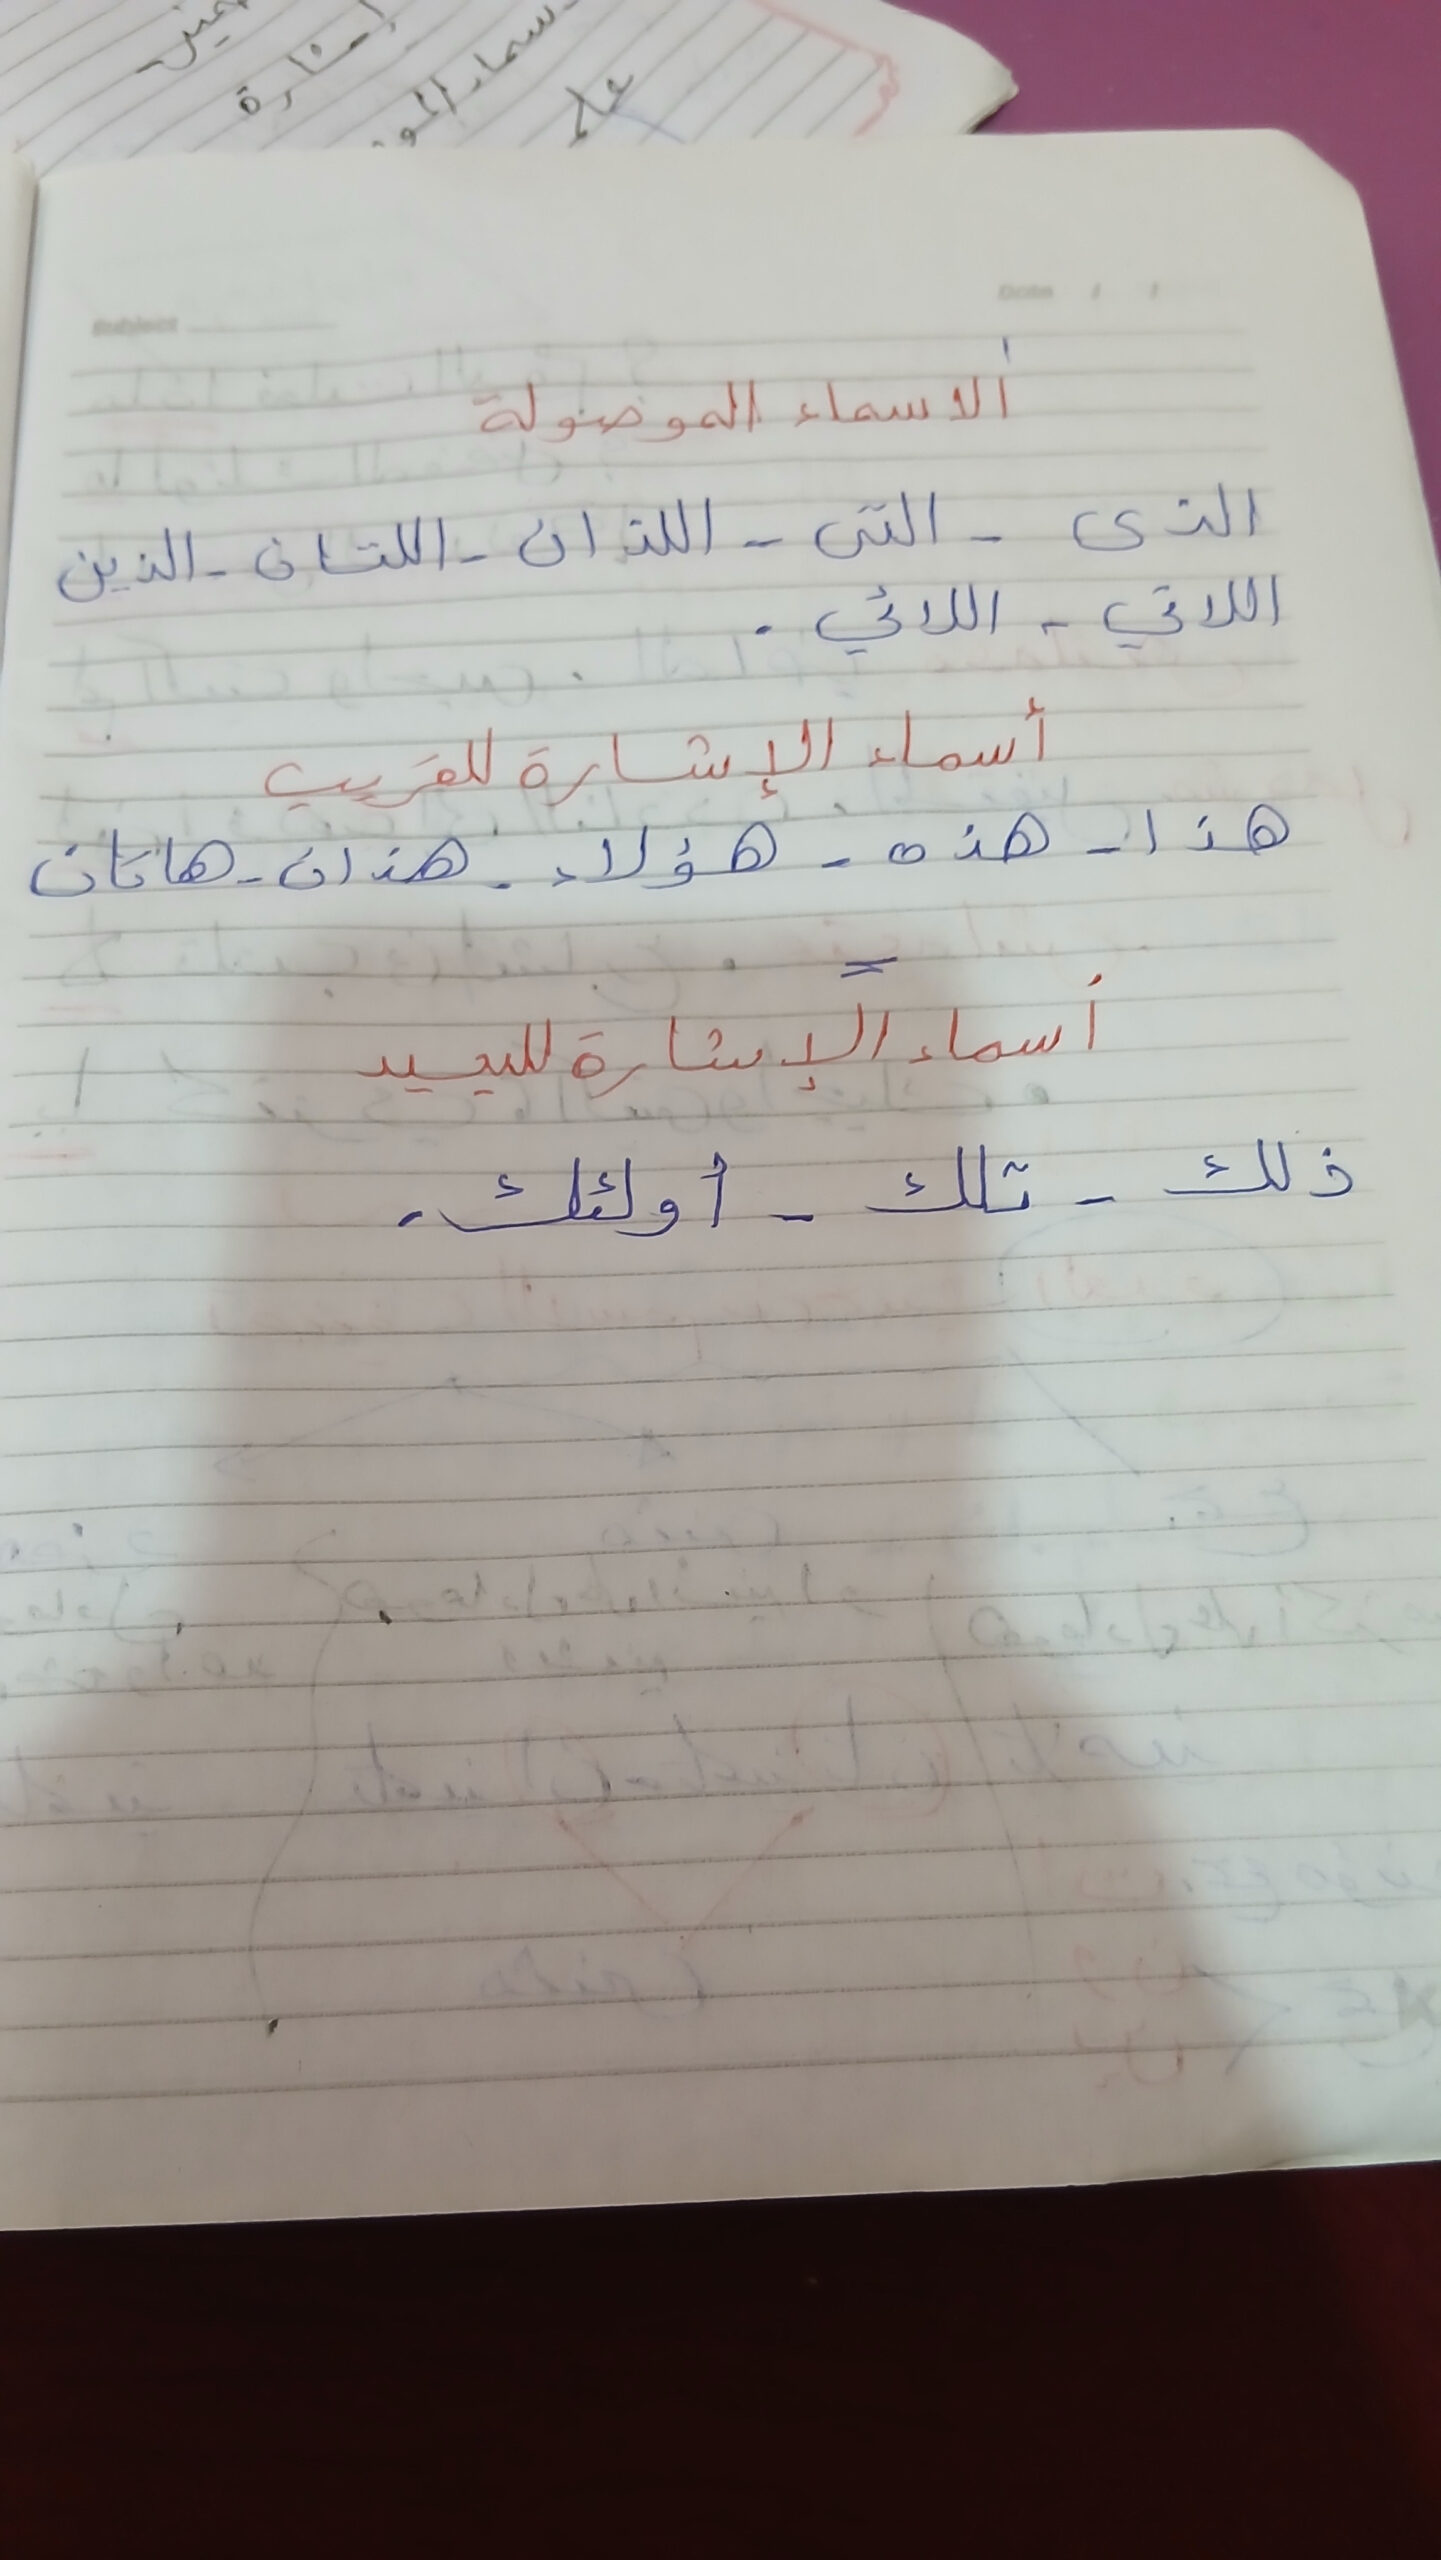 إشارة
علم
Subject
Date / /
ألاسماء الموصولة
الذى - التى - اللذان - اللتان - الذين
اللاتي - اللائي .
أسماء الإشارة للقريب
هذا - هذه - هؤلاء - هذان - هاتان
أسماء الإشارة للبعيد
ذلك - تلك - أولئك .